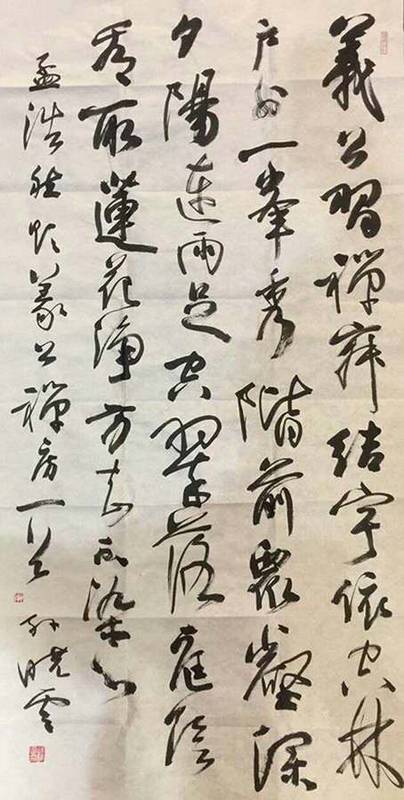 義公習禪寂結宇依空林
户外一峯秀階前眾壑深
夕陽連雨足空翠落庭陰
看取蓮花淨方知不染心
孟浩然題義公禪房一首 孫曉雲